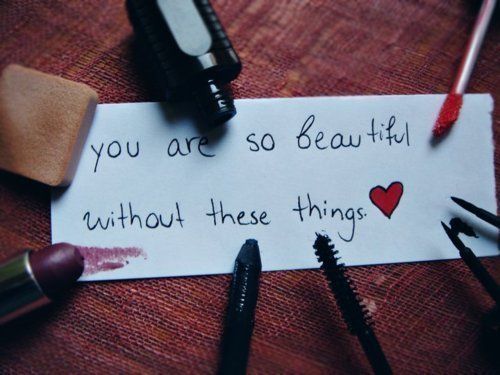 you are so beautiful
without these things.